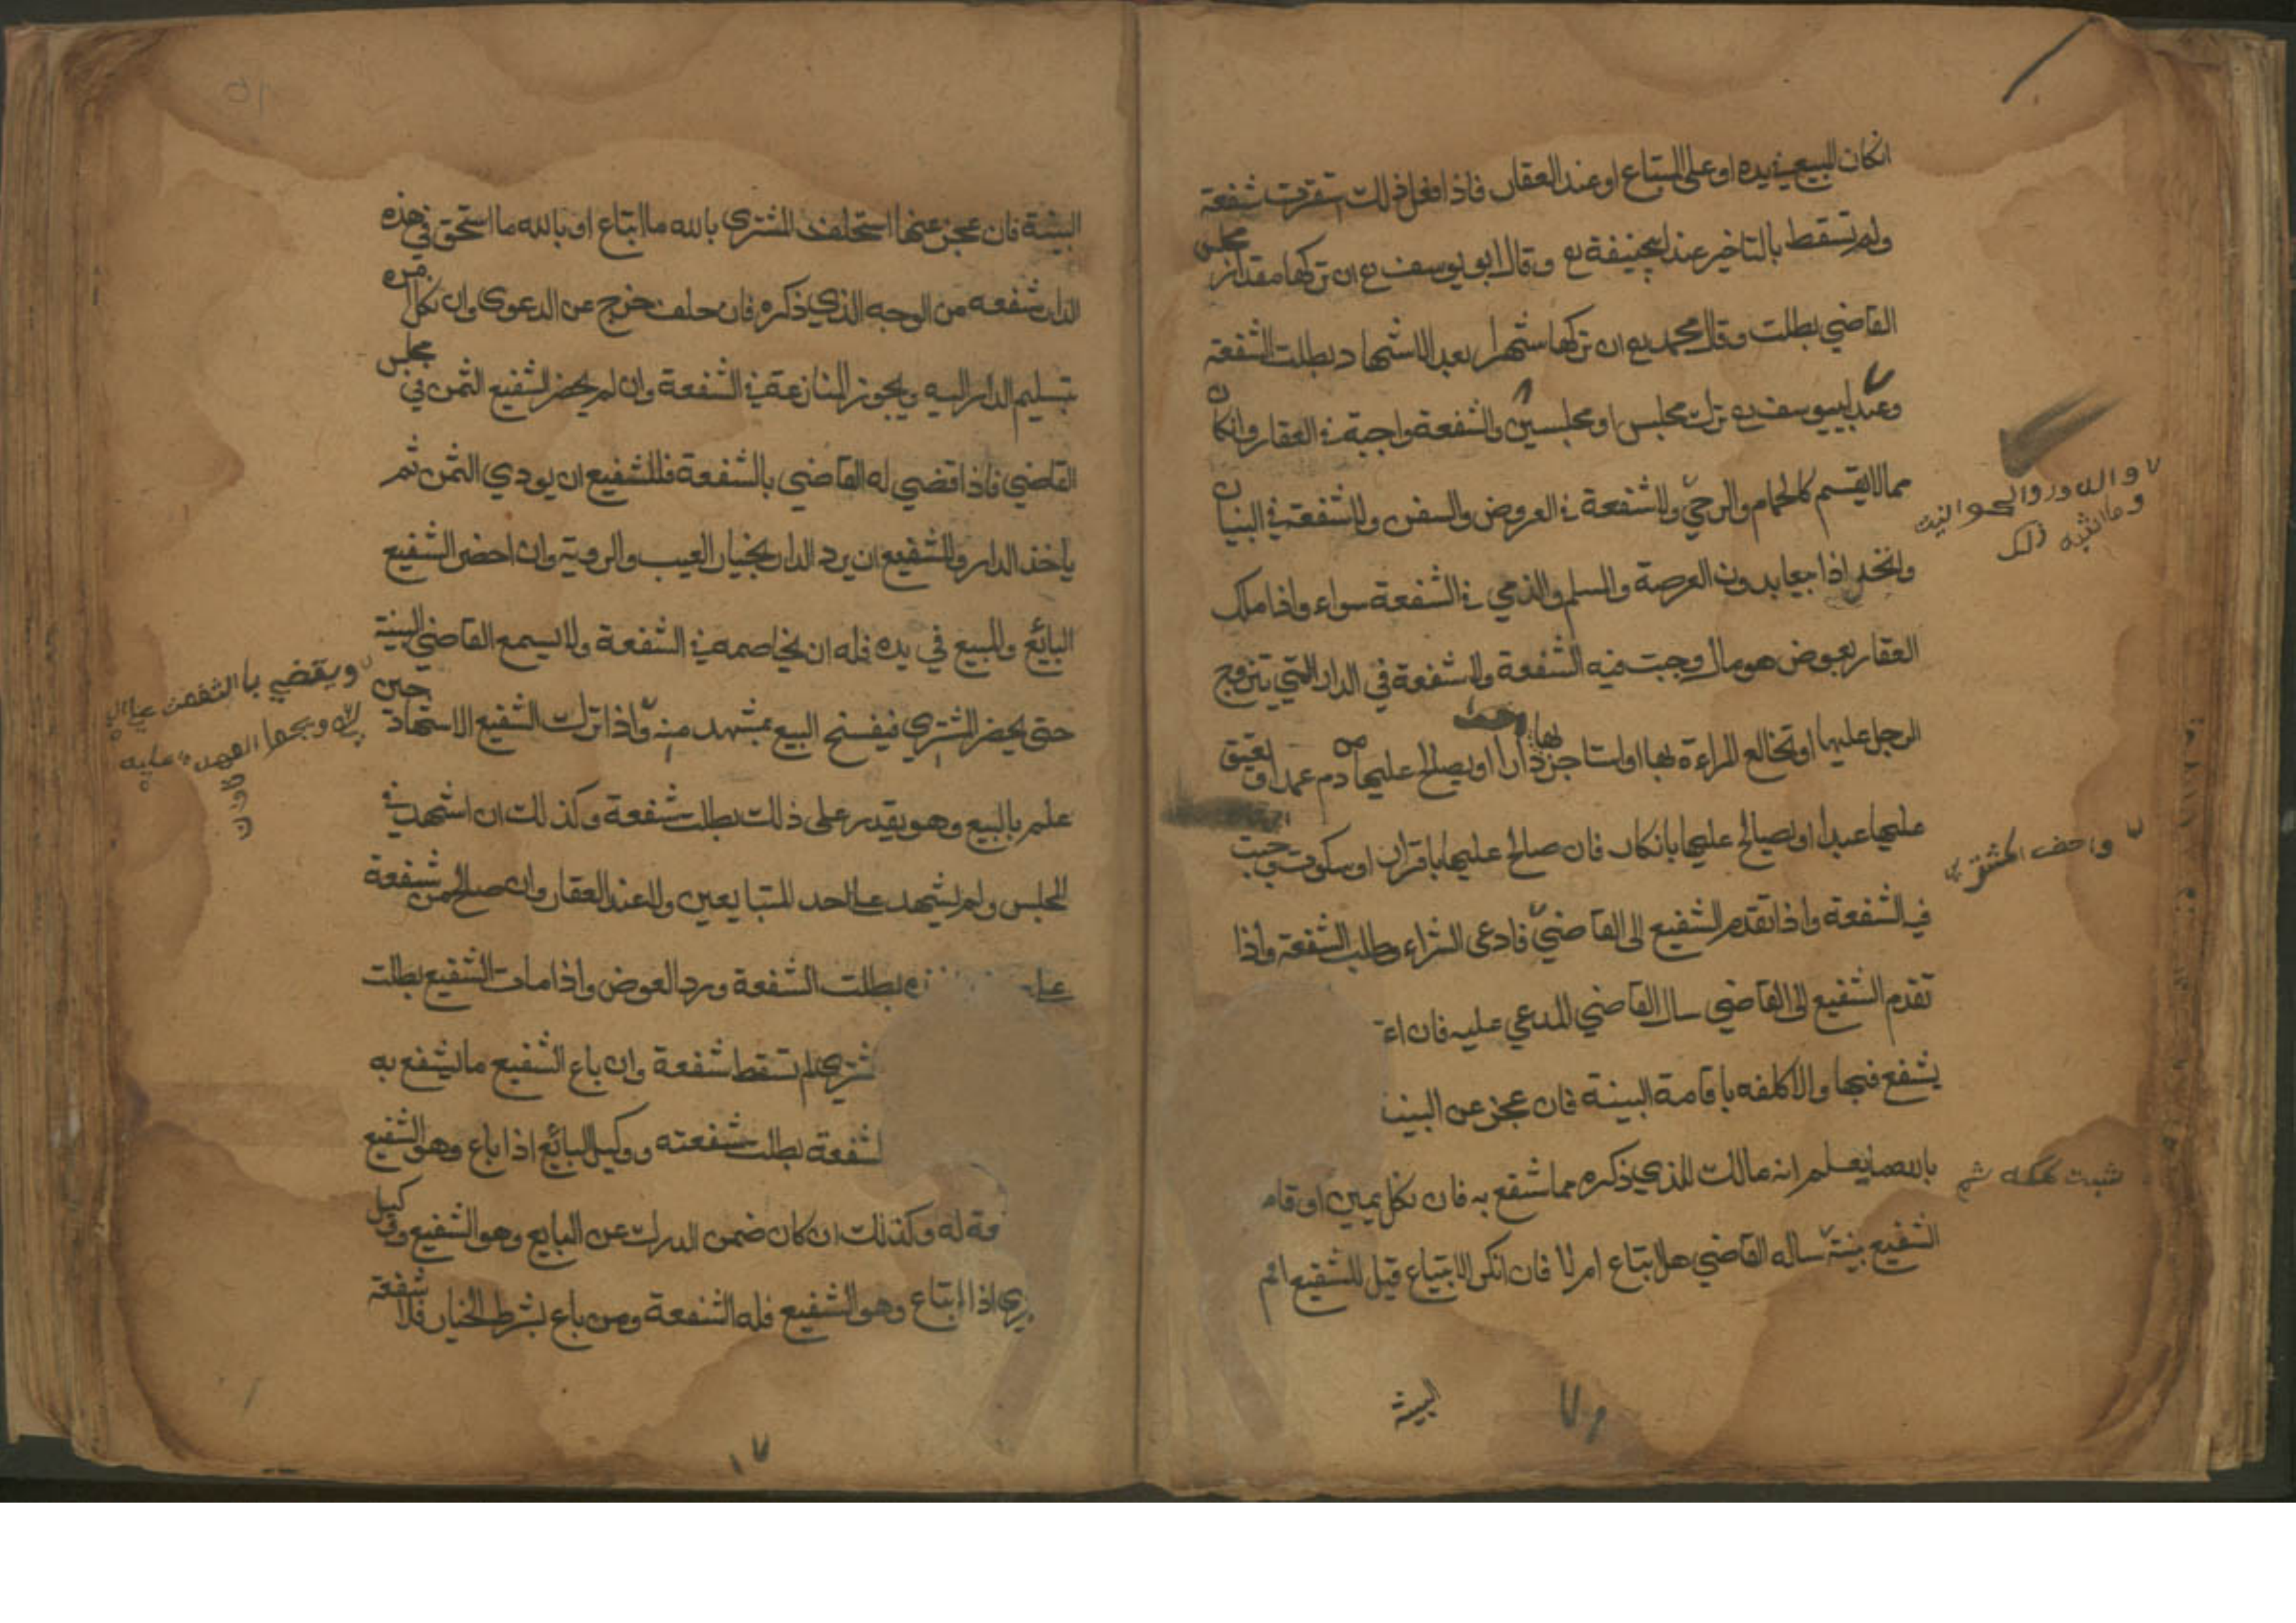 انكان المبيع في يده او على المبتاع او عند العقار فاذا فعل ذلك استقرت شفعة
ولم تسقط بالتاخير عند ابيحنيفة رح وقال ابو يوسف رح ان تركها مقدار مجلس
القاضي بطلت وقال محمد رح ان تركها شهرا بعد الاشهاد بطلت الشفعة
وعند ابيوسف رح ترك مجلس او مجلسين والشفعة واجبة في العقار وانكان
مما لا يقسم كالحمام والرحي ولا شفعة في العروض والسفن ولا شفعة في البنيان
والنخل اذا بيعا بدون العرصة والمسلم والذمي في الشفعة سواء واذا ملك
العقار بعوض هو مال وجبت فيه الشفعة ولا شفعة في الدار التي يتزوج
الرجل عليها او تخالع المراءة بها او استاجر بها دارا او يصالح عليها من دم عمد او يعتق
عليها عبدا او يصالح عليها بانكار فان صالح عليها باقرار او سكوت وجبت
فيه الشفعة واذا تقدم الشفيع الى القاضي فادعى الشراء وطلب الشفعة واذا
تقدم الشفيع الى القاضي سال القاضي المدعي عليه فان اعت
يشفع فيها والا كلفه باقامة البينة فان عجز عن البين
بالله ما يعلم انه مالك للذي ذكره مما شفع به فان نكل يمين او قام
الشفيع بينة ساله القاضي هل ابتاع ام لا فان انكر الابتياع قيل للشفيع اقم
البينة
والدور والحوانيت
وما اشبه ذلك
البينة فان عجز عنها استحلف المشتري بالله ما ابتاع او بالله ما استحق في هذه
الدار شفعه من الوجه الذي ذكره فان حلف خرج عن الدعوى وان نكل امره
بتسليم الدار اليه ويجوز المنازعة في الشفعة وان لم يحضر الشفيع الثمن في مجلس
القاضي فاذا قضي له القاضي بالشفعة فللشفيع ان يودي الثمن ثم
ياخذ الدار وللشفيع ان يرد الدار بخيار العيب والروية وان احضر الشفيع
البائع والمبيع في يده فله ان يخاصمه في الشفعة ولا يسمع القاضي البينة
حتى يحضر المشتري فيفسخ البيع بمشهد منه واذا ترك الشفيع الاشهاد حين
علم بالبيع وهو يقدر على ذلك بطلت شفعة وكذلك ان اشهد في
المجلس ولم يشهد على احد المتبايعين ولا عند العقار وان صالح من شفعة
بطلت الشفعة ورد العوض واذا مات الشفيع بطلت
شتري لم تسقط شفعة وان باع الشفيع ما يشفع به
لشفعة بطلت شفعته ووكيل البائع اذا باع وهو الشفيع
فة له وكذلك ان كان ضمن الدرك عن البايع وهو الشفيع ووكيل
تري اذا ابتاع وهو الشفيع فله الشفعة ومن باع بشرط الخيار فلا شفعة